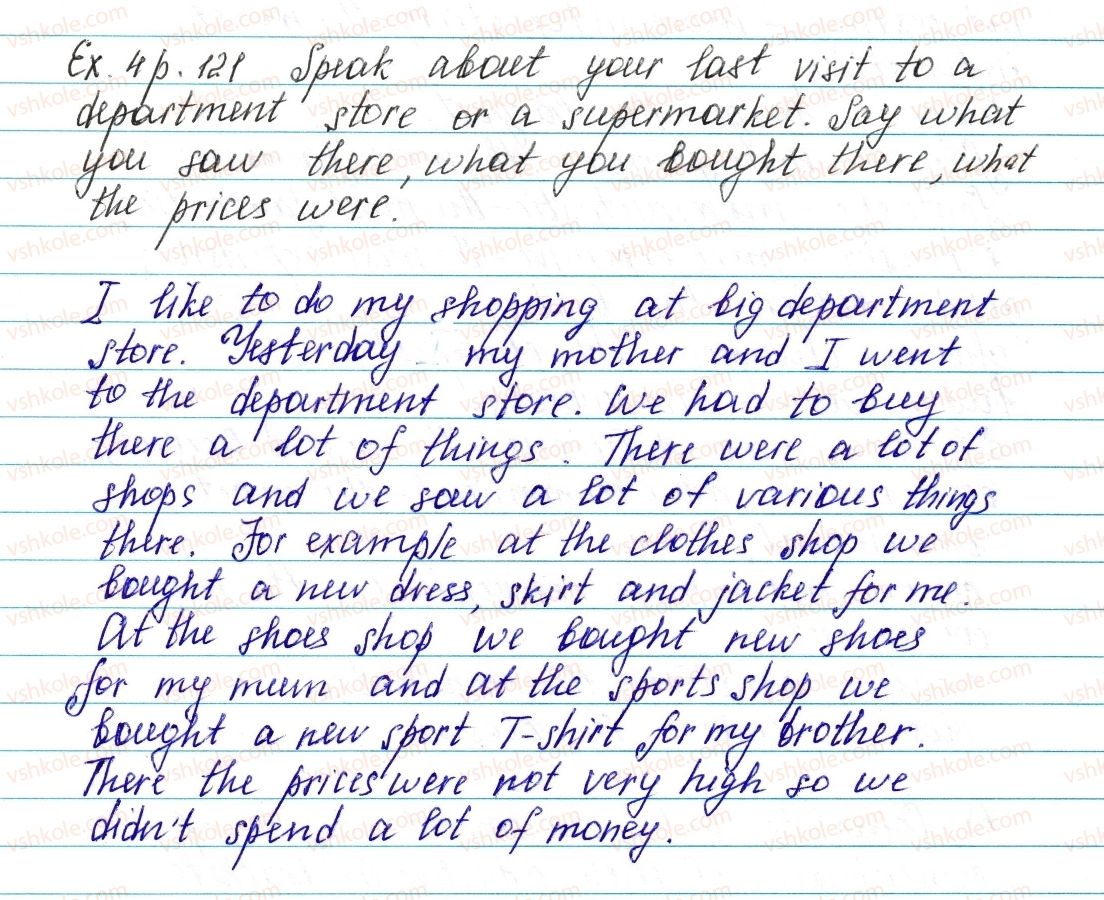 Ex. 4 p. 121 Speak about your last visit to a
department store or a supermarket. Say what
you saw there, what you bought there, what
the prices were.
I like to do my shopping at big department
store. Yesterday my mother and I went
to the department store. We had to buy
there a lot of things. There were a lot of
shops and we saw a lot of various things
there. For example at the clothes shop we
bought a new dress, skirt and jacket for me.
At the shoes shop we bought new shoes
for my mum and at the sports shop we
bought a new sport T-shirt for my brother.
There the prices were not very high so we
didn't spend a lot of money.